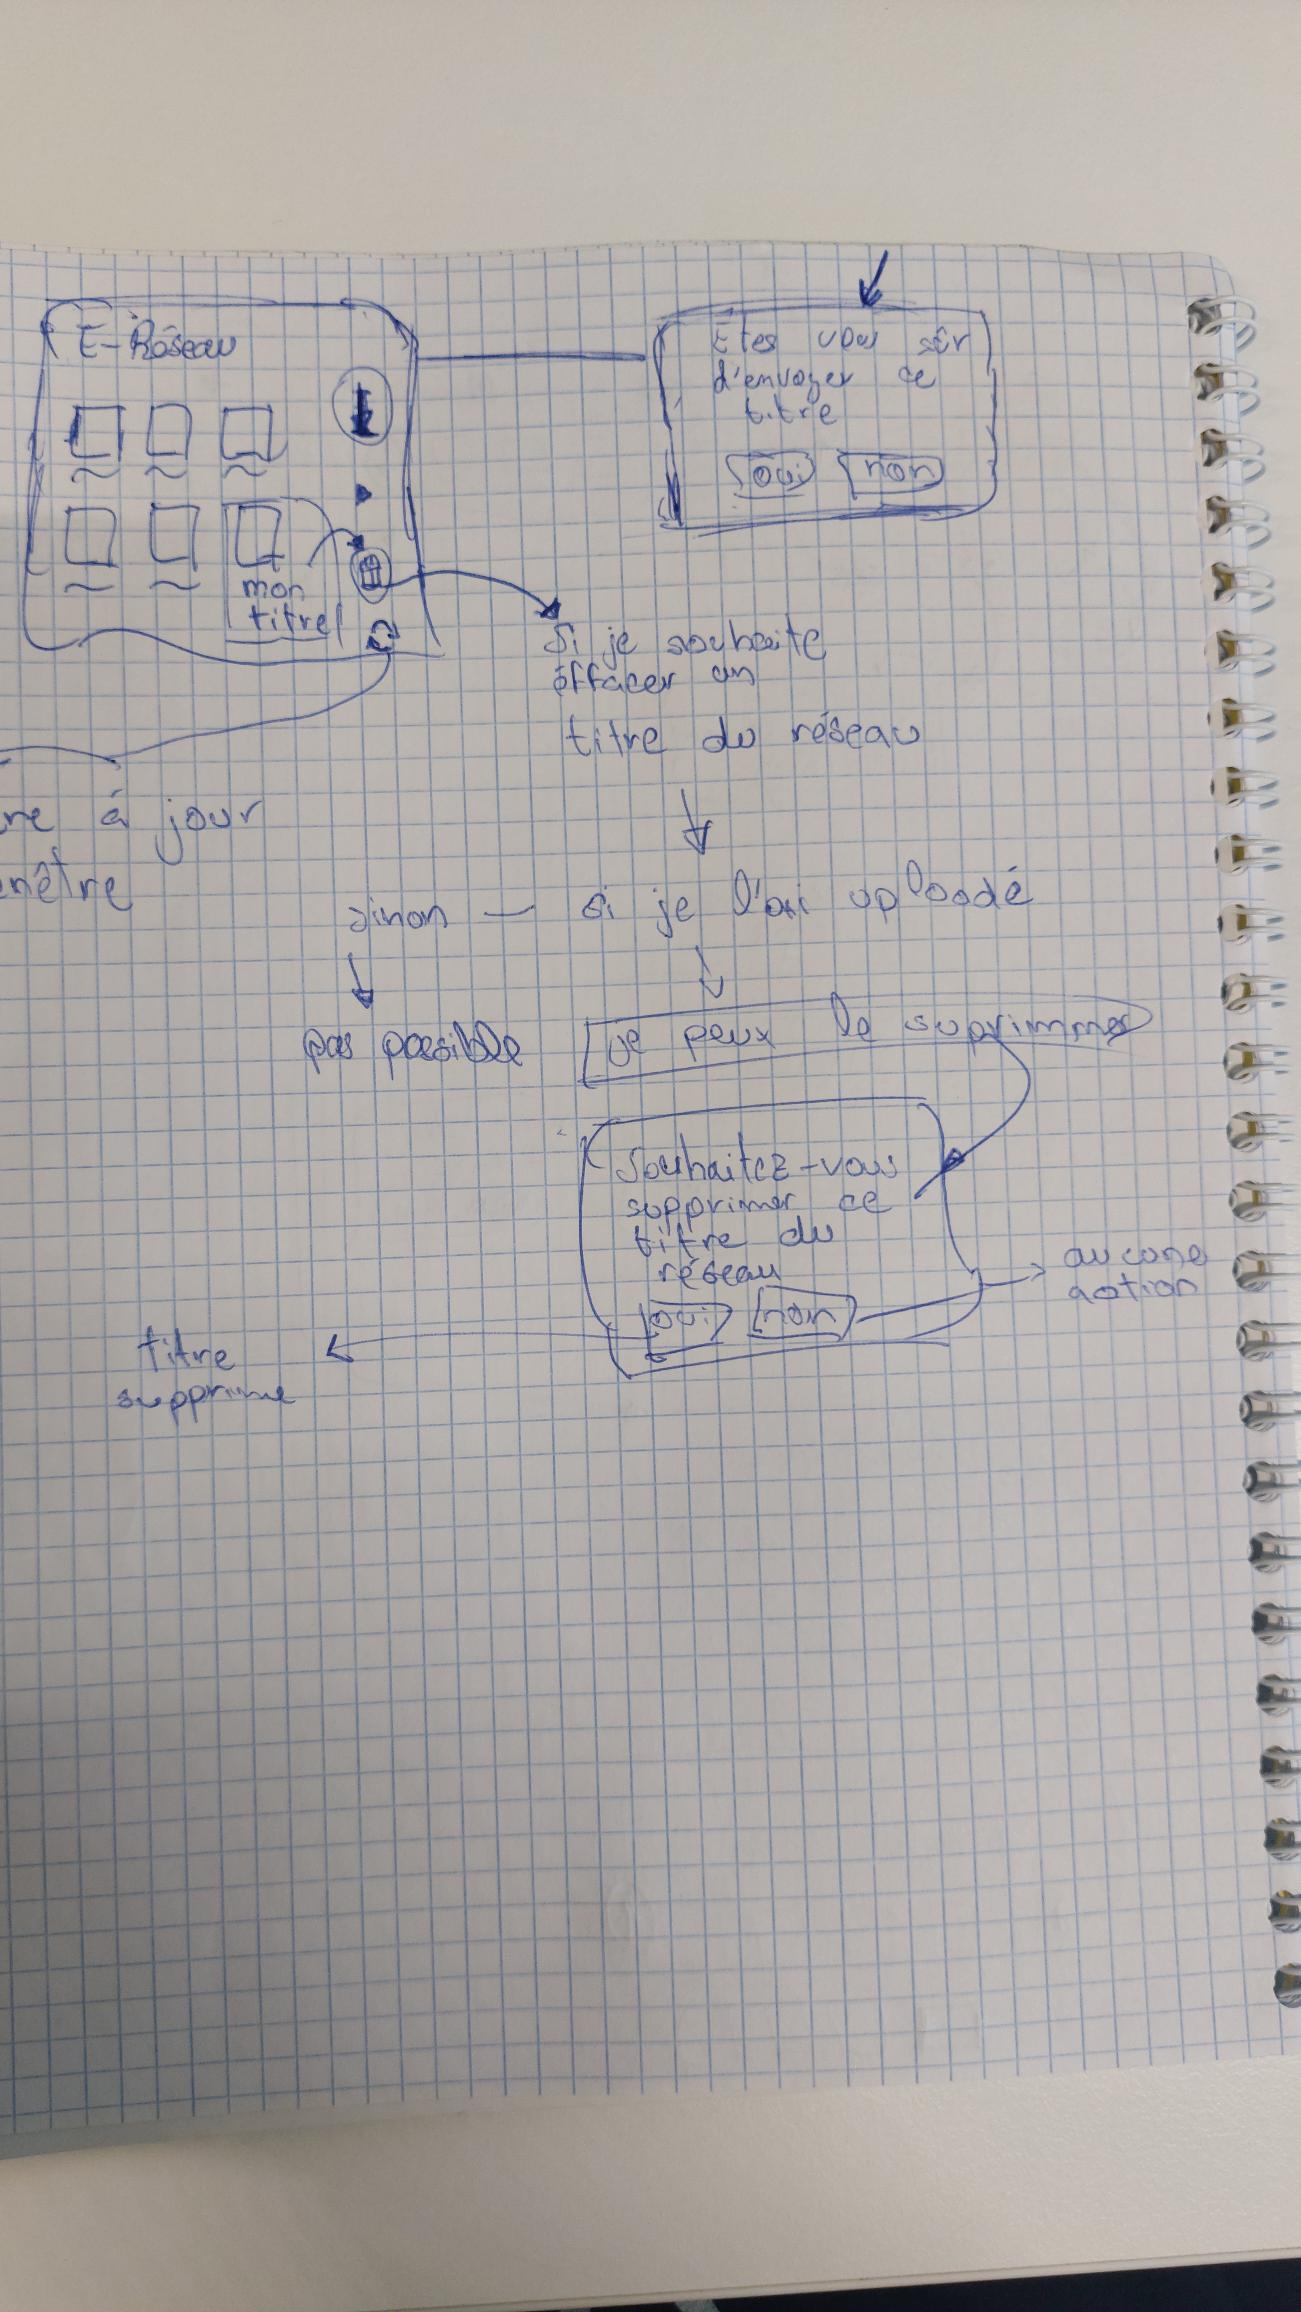 E-Réseau
mon
titre
Êtes vous sûr
d'envoyer ce
titre
oui non
Si je souhaite
éffacer un
titre du réseau
re à jour
enêtre
sinon — si je l'ai uploadé
pas possible
je peux le suprimmer
Souhaitez-vous
supprimer ce
titre du
réseau
oui non
aucune
action
titre
supprime